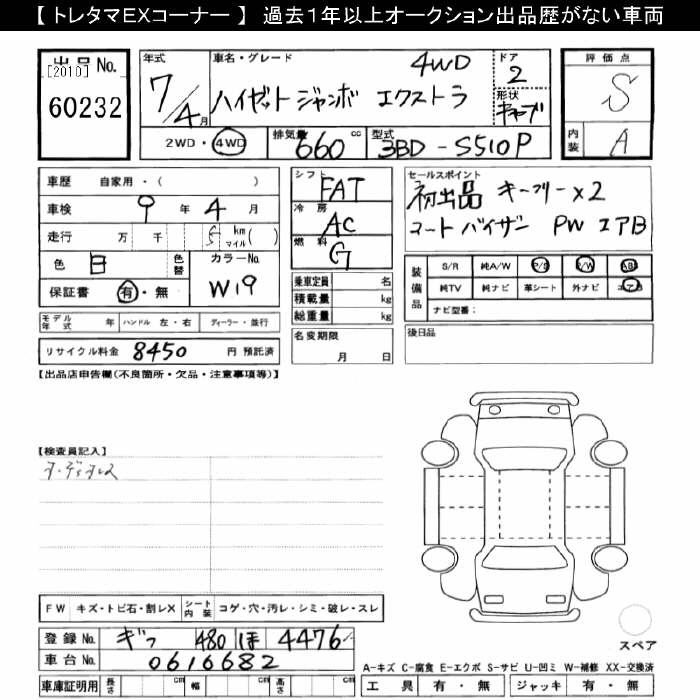 【 トレタマEXコーナー 】 過去1年以上オークション出品歴がない車両
出品 No.
[2010]
60232
年式
7/4月
車名・グレード
4WD
ハイゼット ジャンボ エクストラ
ドア
2
形状
キャブ
2WD・4WD
排気量
660 cc
型式
3BD - S510P
評価点
S
内装
A
車歴 自家用・( )
車検 9年 4月
走行 万 千 5 km マイル( )
色 白
色替
カラーNo.
W19
保証書 有・無
シフト
FAT
冷房
AC
燃料
G
乗車定員 名
積載量 kg
総重量 kg
セールスポイント
初出品 キーフリー×2
コートバイザー PW エアB
装備品
S/R 純A/W P/S P/W ABS
純TV 純ナビ 革シート 外ナビ エアB
ナビ型番:
モデル年式 年 ハンドル 左・右 ディーラー・並行
リサイクル料金 8450 円 預託済
名変期限
月 日
後日品
【出品店申告欄(不良箇所・欠品・注意事項等)】
【検査員記入】
FW キズ・トビ石・割レX シート内装 コゲ・穴・汚レ・シミ・破レ・スレ
登録 No. ギフ 480 ほ 4476
車台 No. 0616682
車庫証明用 長さ cm 幅 cm 高さ cm
スペア
A-キズ C-腐食 E-エクボ S-サビ U-凹ミ W-補修 XX-交換済
工具 有・無 ジャッキ 有・無